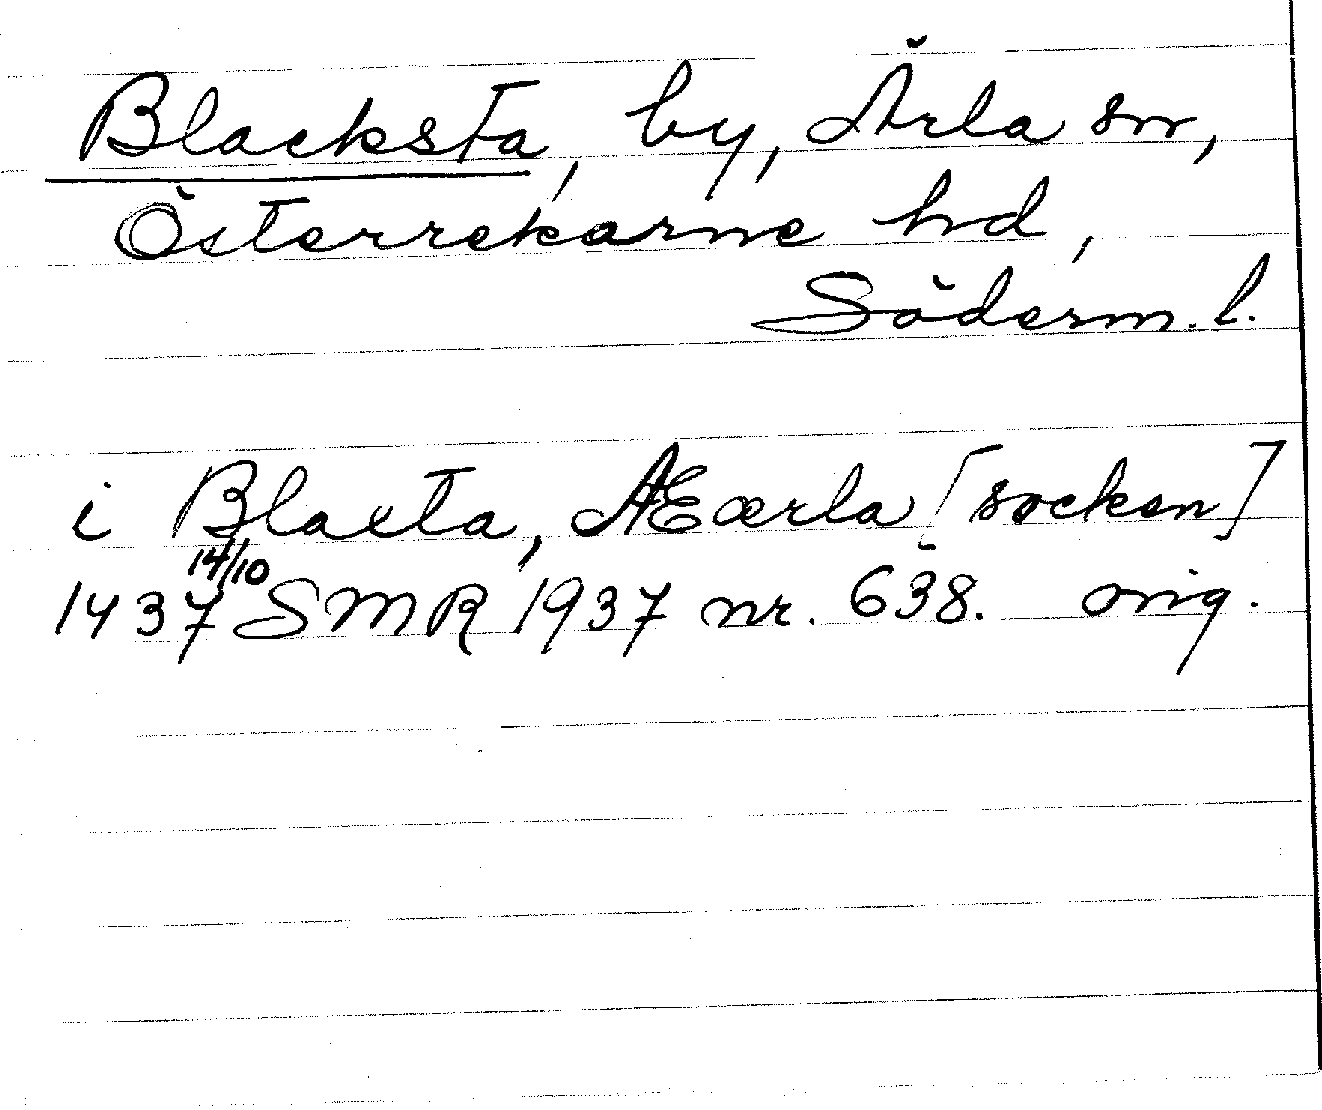 Blacksta, by, Ärla sn,
Österrekarne hd,
Söderm. l.
i Blaxta, Æærla [socken]
1437 14/10 SMR 1937 nr. 638. orig.